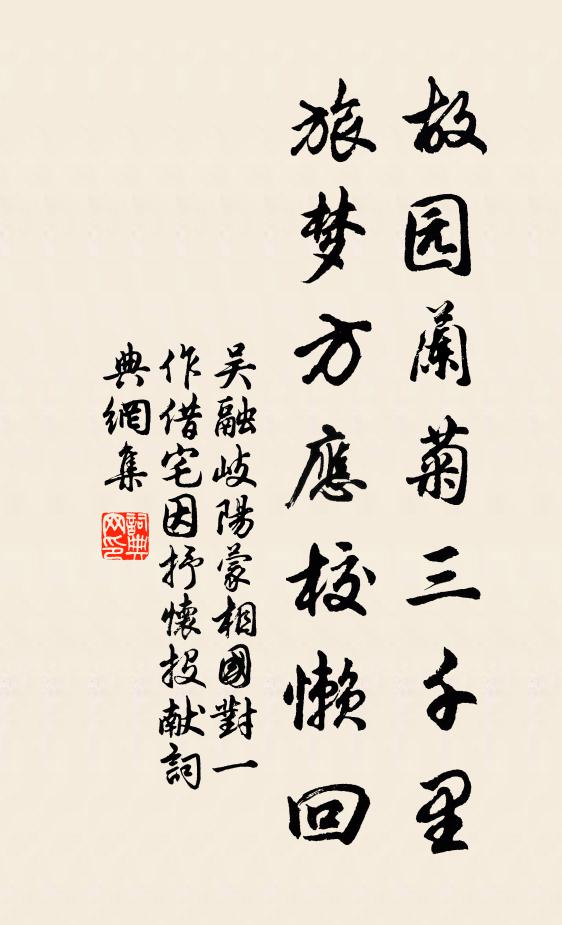 故园蘭菊三千里
旅梦方應校懒回
吴融岐陽蒙相國對一
作借宅因抒懷投献詞
典網集
詞典
网印